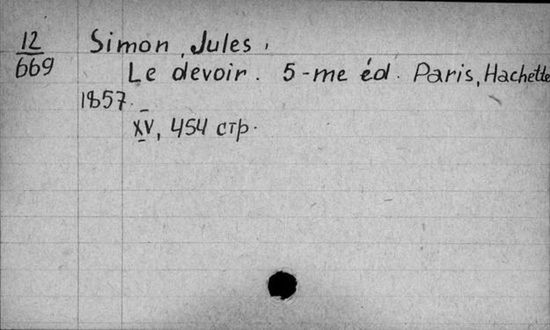 12
669
Simon, Jules.
Le devoir. 5-me éd. Paris, Hachette
1857.
XV, 454 стр.